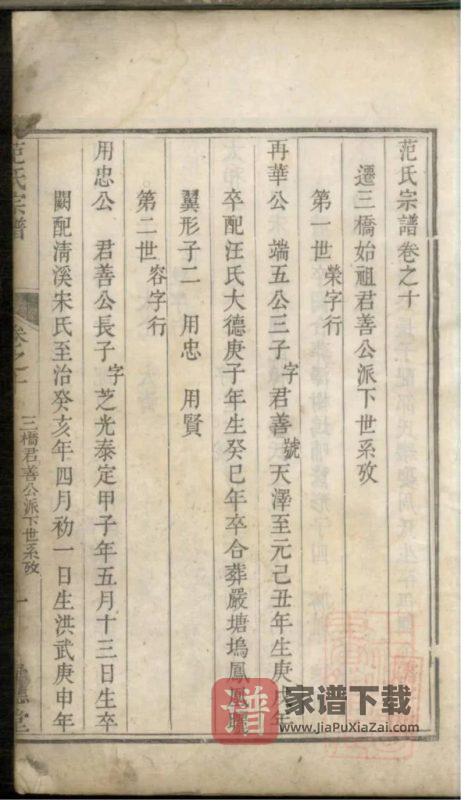 范氏宗譜卷之十
遷三橋始祖君善公派下世系攷
第一世榮字行
再華公 端五公三子字君善號天澤至元己丑年生庚
年
卒配汪氏大德庚子年生癸巳年卒合葬嚴塘塢鳳凰
翼形子二 用忠 用賢
第二世容字行
用忠公 君善公長子字芝光泰定甲子年五月十三日生卒
闕配清溪宋氏至治癸亥年四月初一日生洪武庚申年
范氏宗譜
卷之十
三橋君善公派下世系攷
一
堂
譜
家谱下载
www.JiaPuXiaZai.com